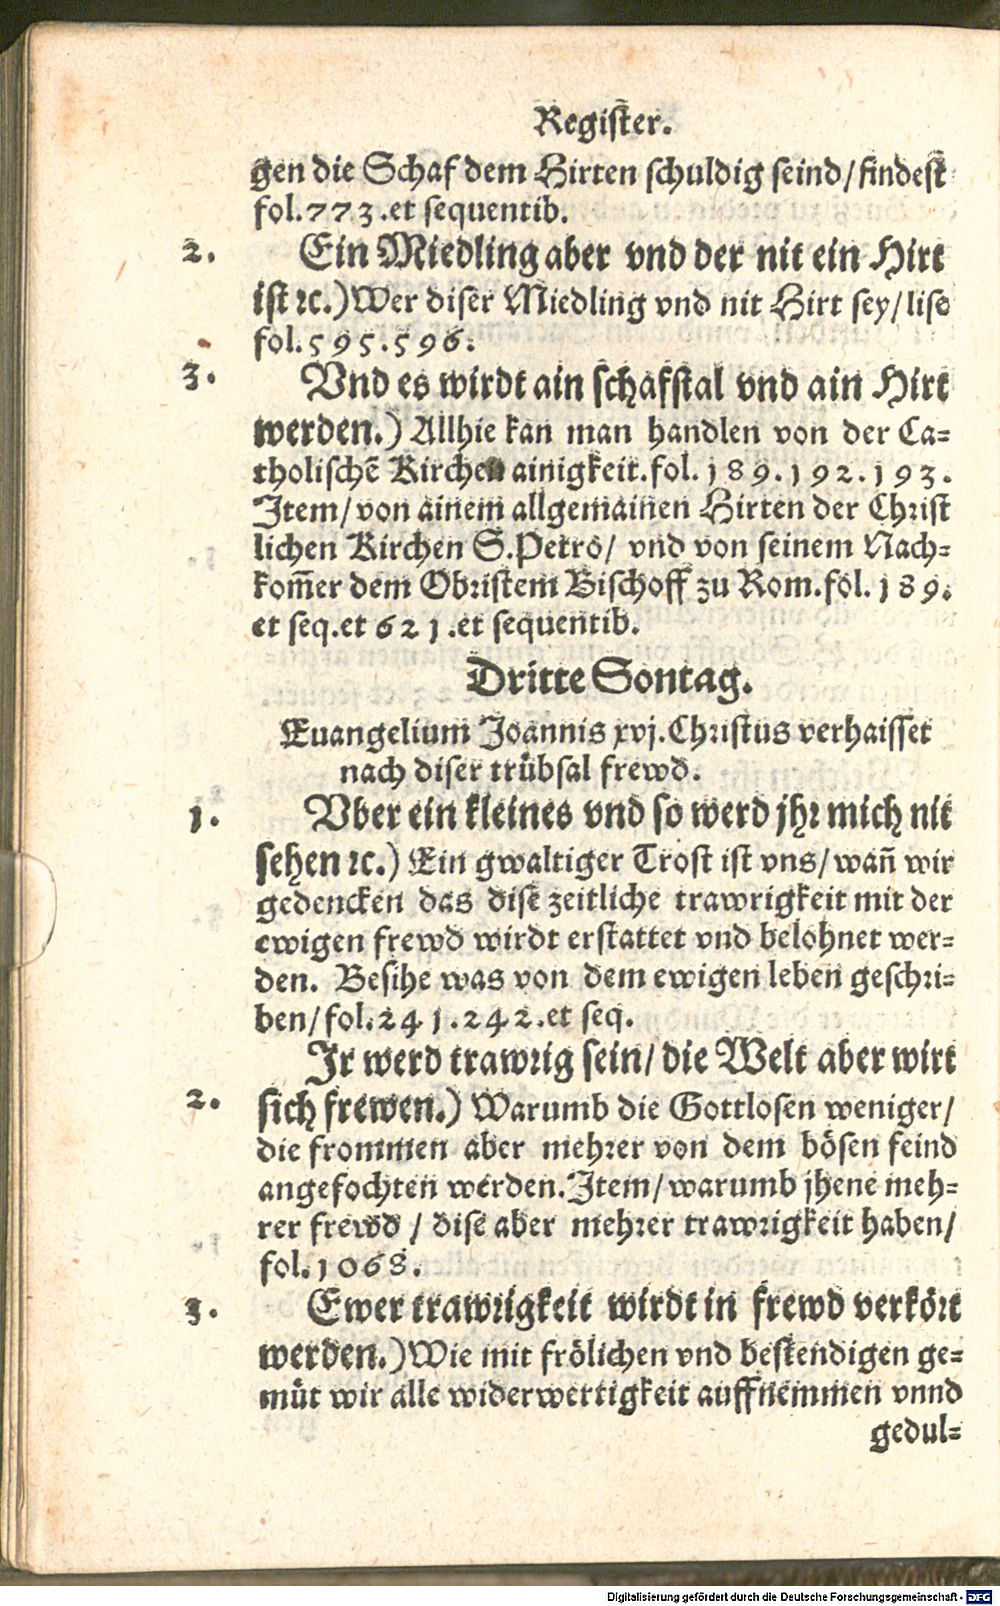 Register.
gen die Schaf dem Hirten schuldig seind/findest
fol.773.et sequentib.
2. Ein Miedling aber vnd der nit ein Hirt
ist ꝛc.) Wer diser Miedling vnd nit Hirt sey/lise
fol.595.596.
3. Vnd es wirdt ain schafstal vnd ain Hirt
werden.) Allhie kan man handlen von der Ca=
tholischẽ Kirchen ainigkeit.fol.189.192.193.
Item/von ainem allgemainen Hirten der Christ
lichen Kirchen S.Petro/ vnd von seinem Nach=
kom̃er dem Obristem Bischoff zu Rom.fol.189.
et seq.et 621.et sequentib.
Dritte Sontag.
Euangelium Joannis xvj.Christus verhaisset
nach diser trübsal frewd.
1. Vber ein kleines vnd so werd jhr mich nit
sehen ꝛc.) Ein gwaltiger Trost ist vns/wañ wir
gedencken das dise zeitliche trawrigkeit mit der
ewigen frewd wirdt erstattet vnd belohnet wer=
den. Besihe was von dem ewigen leben geschri=
ben/fol.241.242.et seq.
Ir werd trawrig sein/die Welt aber wirt
2. sich frewen.) Warumb die Gottlosen weniger/
die frommen aber mehrer von dem bösen feind
angefochten werden.Item/warumb jhene meh=
rer frewd / dise aber mehrer trawrigkeit haben/
fol.1068.
3. Ewer trawrigkeit wirdt in frewd verkört
werden.) Wie mit frölichen vnd bestendigen ge=
müt wir alle widerwertigkeit auffnemmen vnnd
gedul=
Digitalisierung gefördert durch die Deutsche Forschungsgemeinschaft - DFG